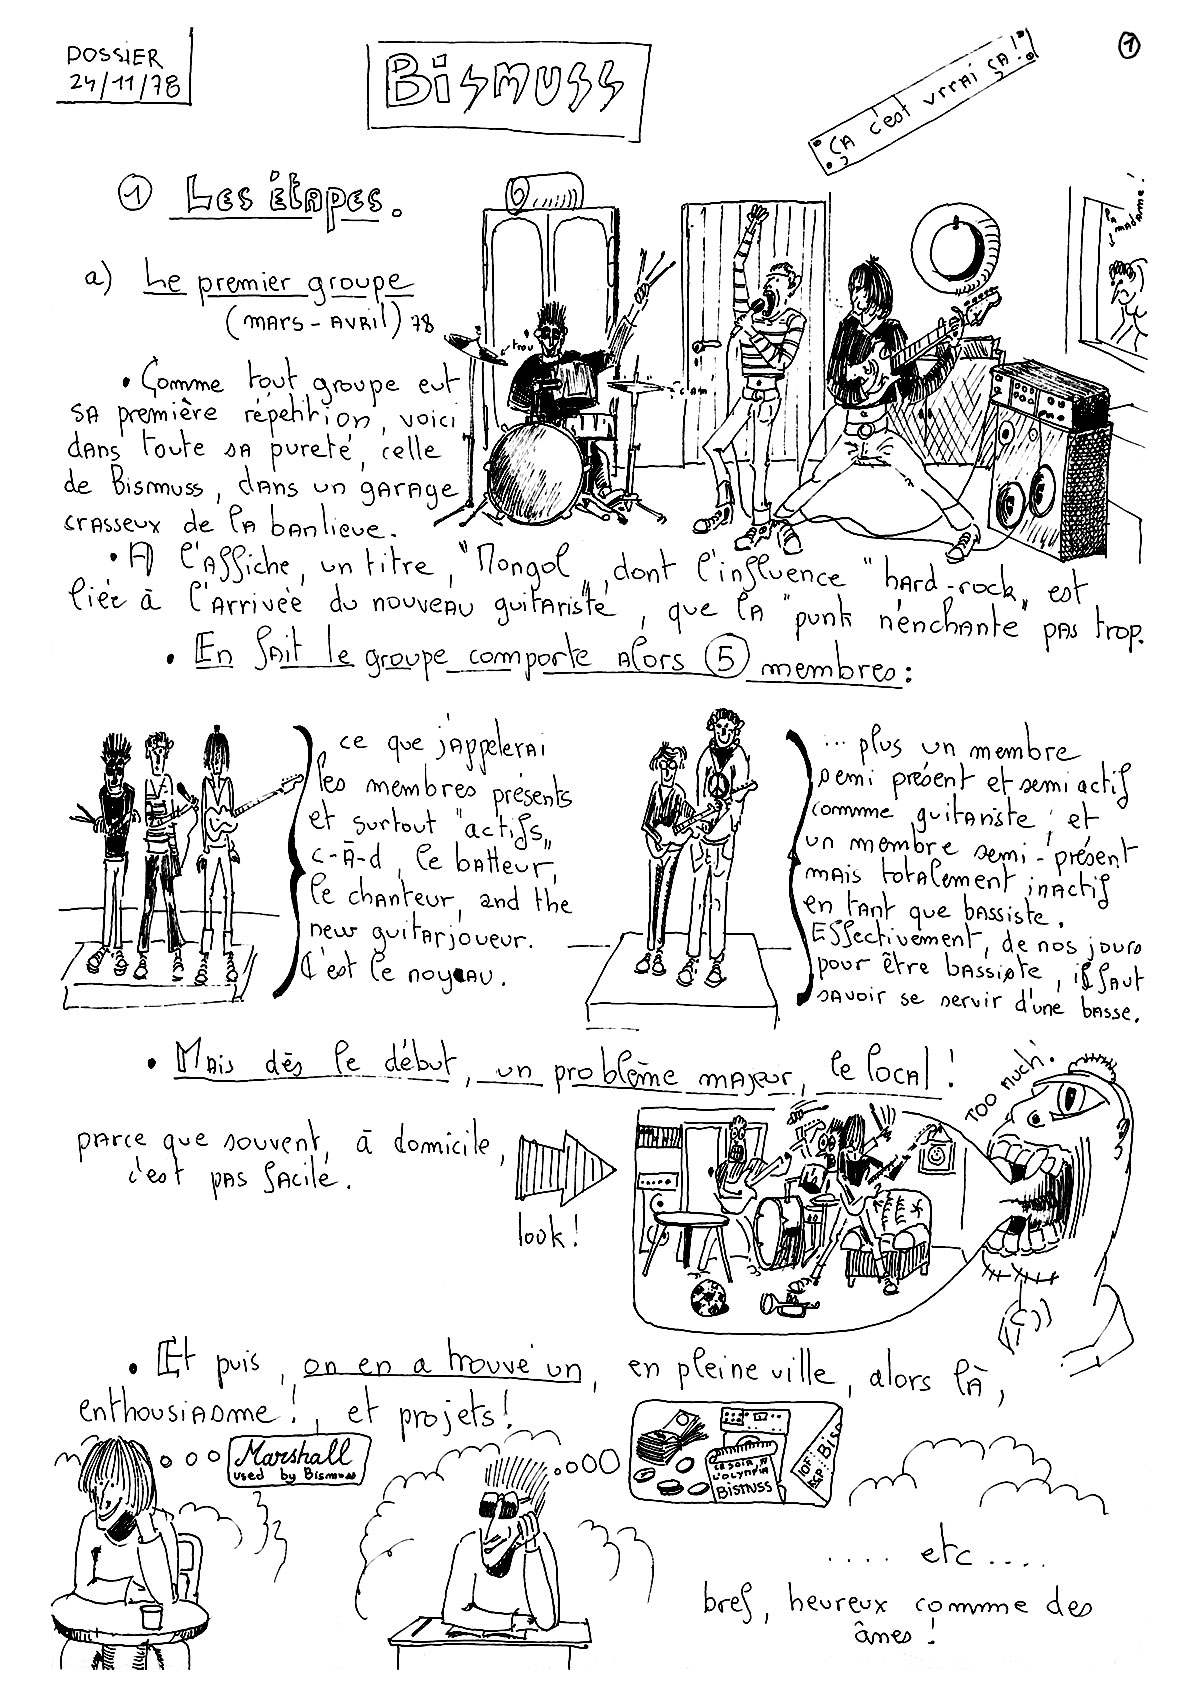 DOSSIER
24/11/78
Bismuss
ÇA c'est vrrai ça!
1
1 Les étapes.
a) Le premier groupe
(mars - avril) 78
la madame!
trou
• Comme tout groupe eut
sa première répetition, voici
dans toute sa pureté, celle
de Bismuss, dans un garage
crasseux de la banlieue.
• A l'affiche, un titre, "Mongol", dont l'influence "hard-rock" est
liée à l'arrivée du nouveau guitariste, que la "punk" n'enchante pas trop.
• En fait le groupe comporte alors 5 membres:
ce que j'appelerai
les membres présents
et surtout "actifs"
c-à-d, le batteur,
le chanteur, and the
new guitarjoueur.
C'est le noyeau.
... plus un membre
semi présent et semi actif
commme guitariste; et
un membre semi-présent
mais totalement inactif
en tant que bassiste.
Effectivement, de nos jours
pour être bassiste, il faut
savoir se servir d'une basse.
• Mais dès le début, un problème majeur, le local!
TOO MUCH!
parce que souvent, à domicile,
c'est pas facile.
look!
• Et puis, on en a trouvé un, en pleine ville, alors là,
enthousiasme!, et projets!
Marshall
used by Bismuss
CE SOIR, A
L'OLYMPIA
BISMUSS
10F
BIS
.... etc ....
bref, heureux commme des
ânes!